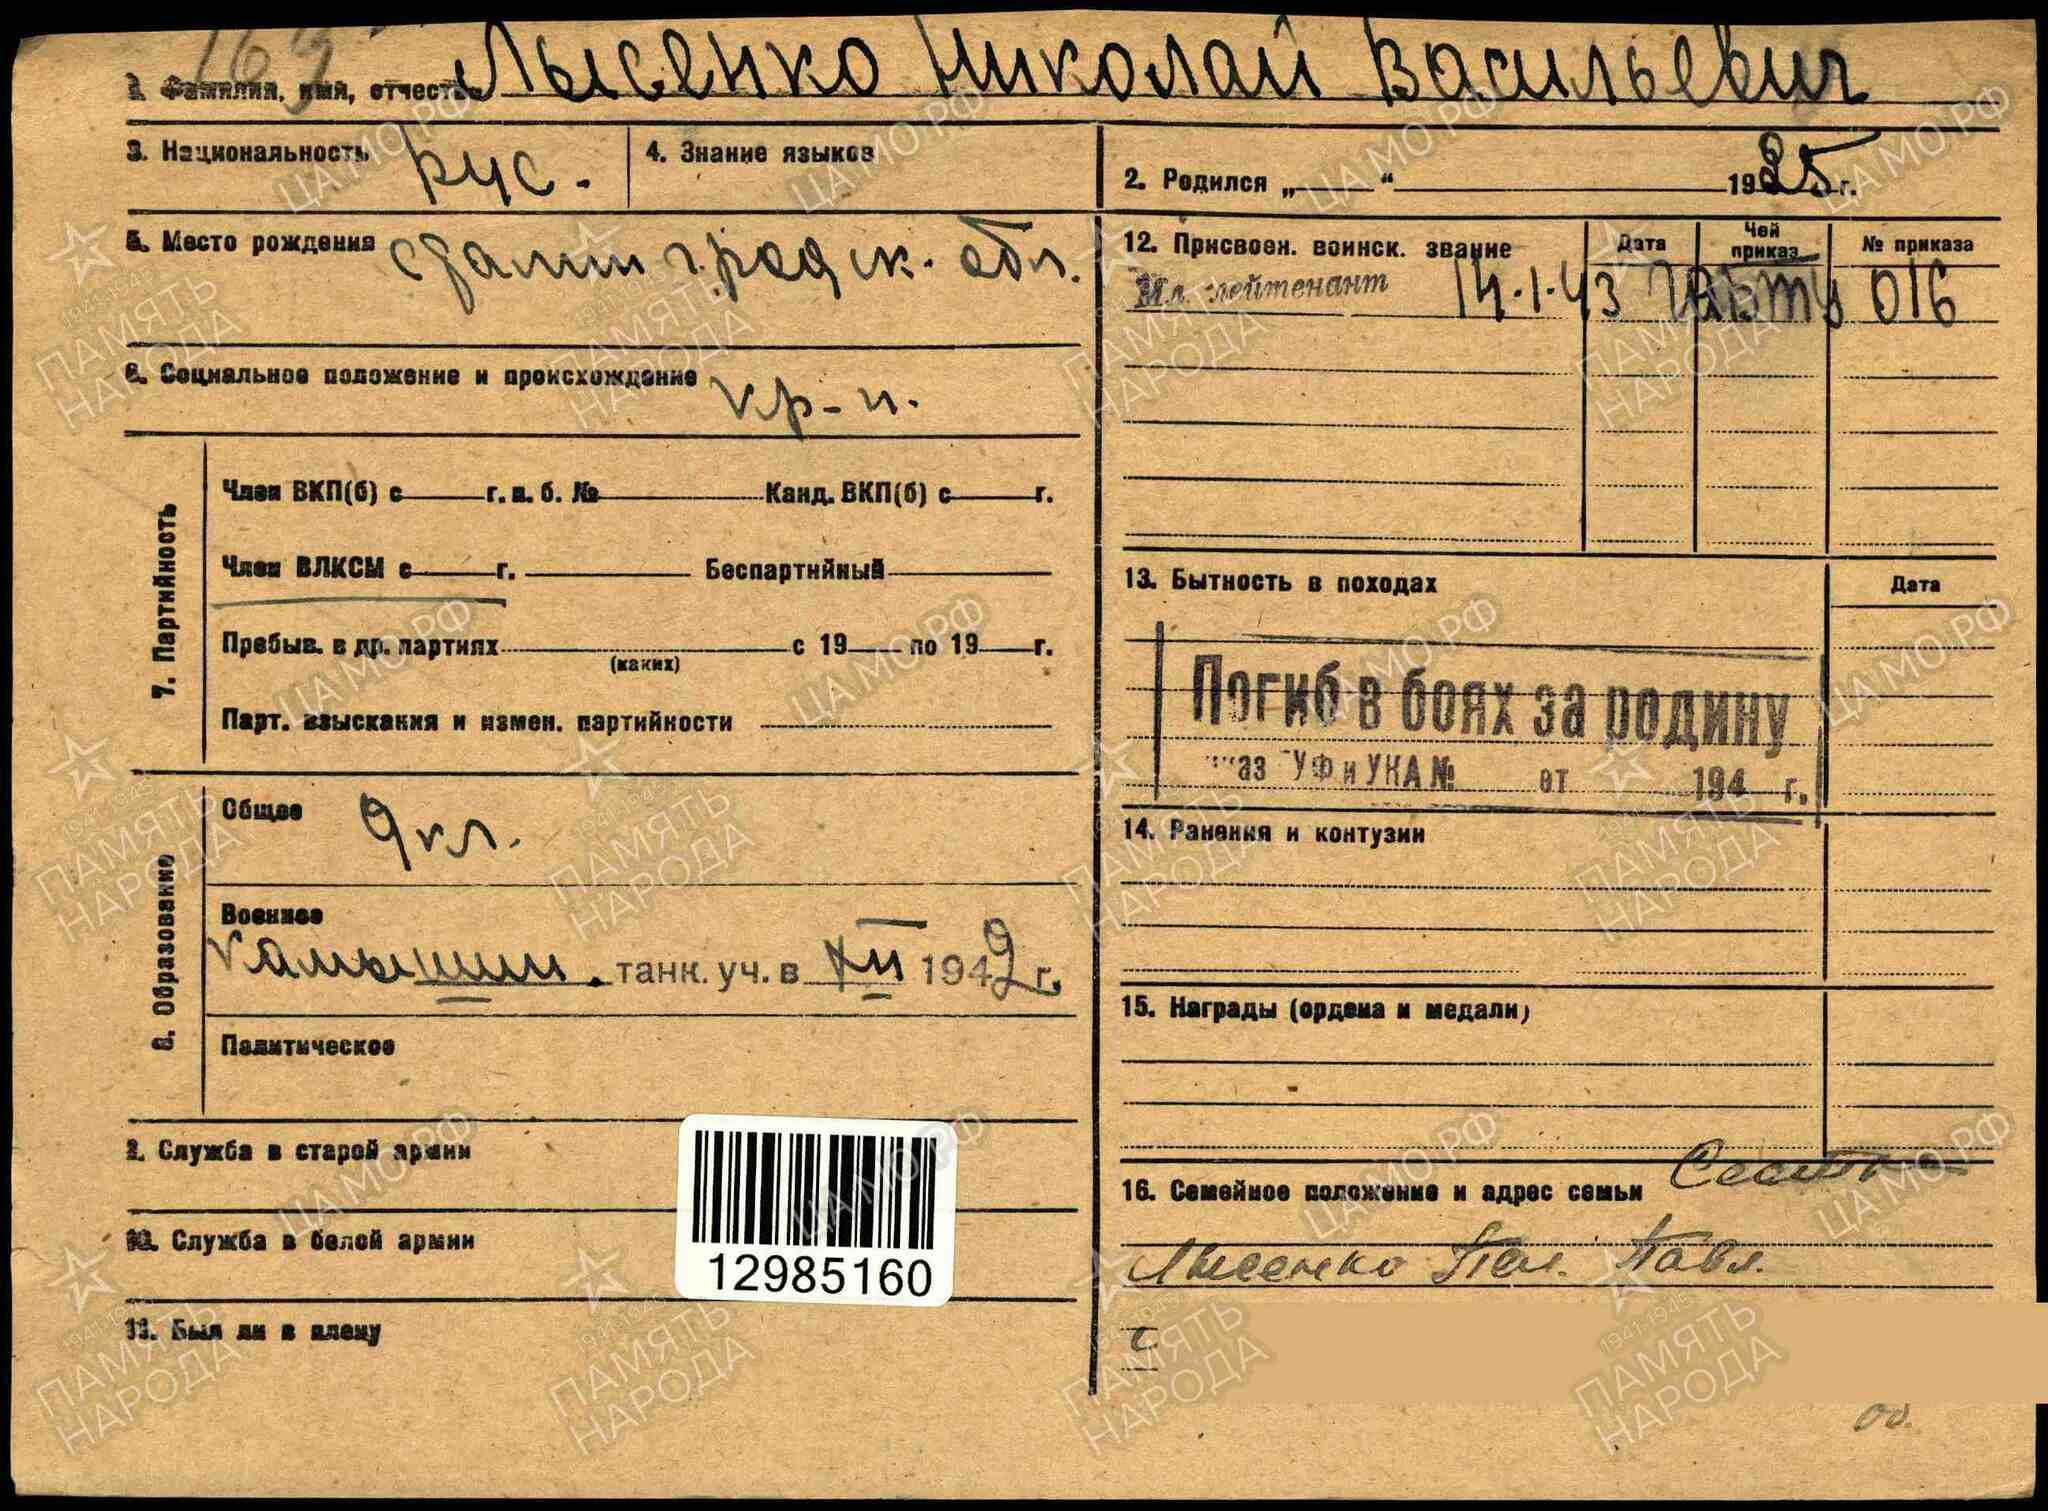 169
1. Фамилия, имя, отчество Лысенко Николай Васильевич
3. Национальность рус. 4. Знание языков
2. Родился „ “ 1925 г.
5. Место рождения Сталинградск. обл.
6. Социальное положение и происхождение кр-н.
7. Партийность
Член ВКП(б) с г. п. б. № Канд. ВКП(б) с г.
Член ВЛКСМ с г. Беспартийный
Пребыв. в др. партиях с 19 по 19 г.
(каких)
Парт. взыскания и измен. партийности
8. Образование
Общее 9 кл.
Военное
Камышин. танк. уч. в XII 1942 г.
Политическое
9. Служба в старой армии
10. Служба в белой армии
11. Был ли в плену
12985160
12. Присвоен. воинск. звание Дата Чей приказ № приказа
Мл. лейтенант 14.1.43 ГАБТУ 016
13. Бытность в походах Дата
Погиб в боях за родину
каз ГУФ и УКА № от 194 г.
14. Ранения и контузии
15. Награды (ордена и медали)
16. Семейное положение и адрес семьи
Лысенко Пел. Павл.
с
ЦАМО.РФ
1941-1945
ПАМЯТЬ
НАРОДА